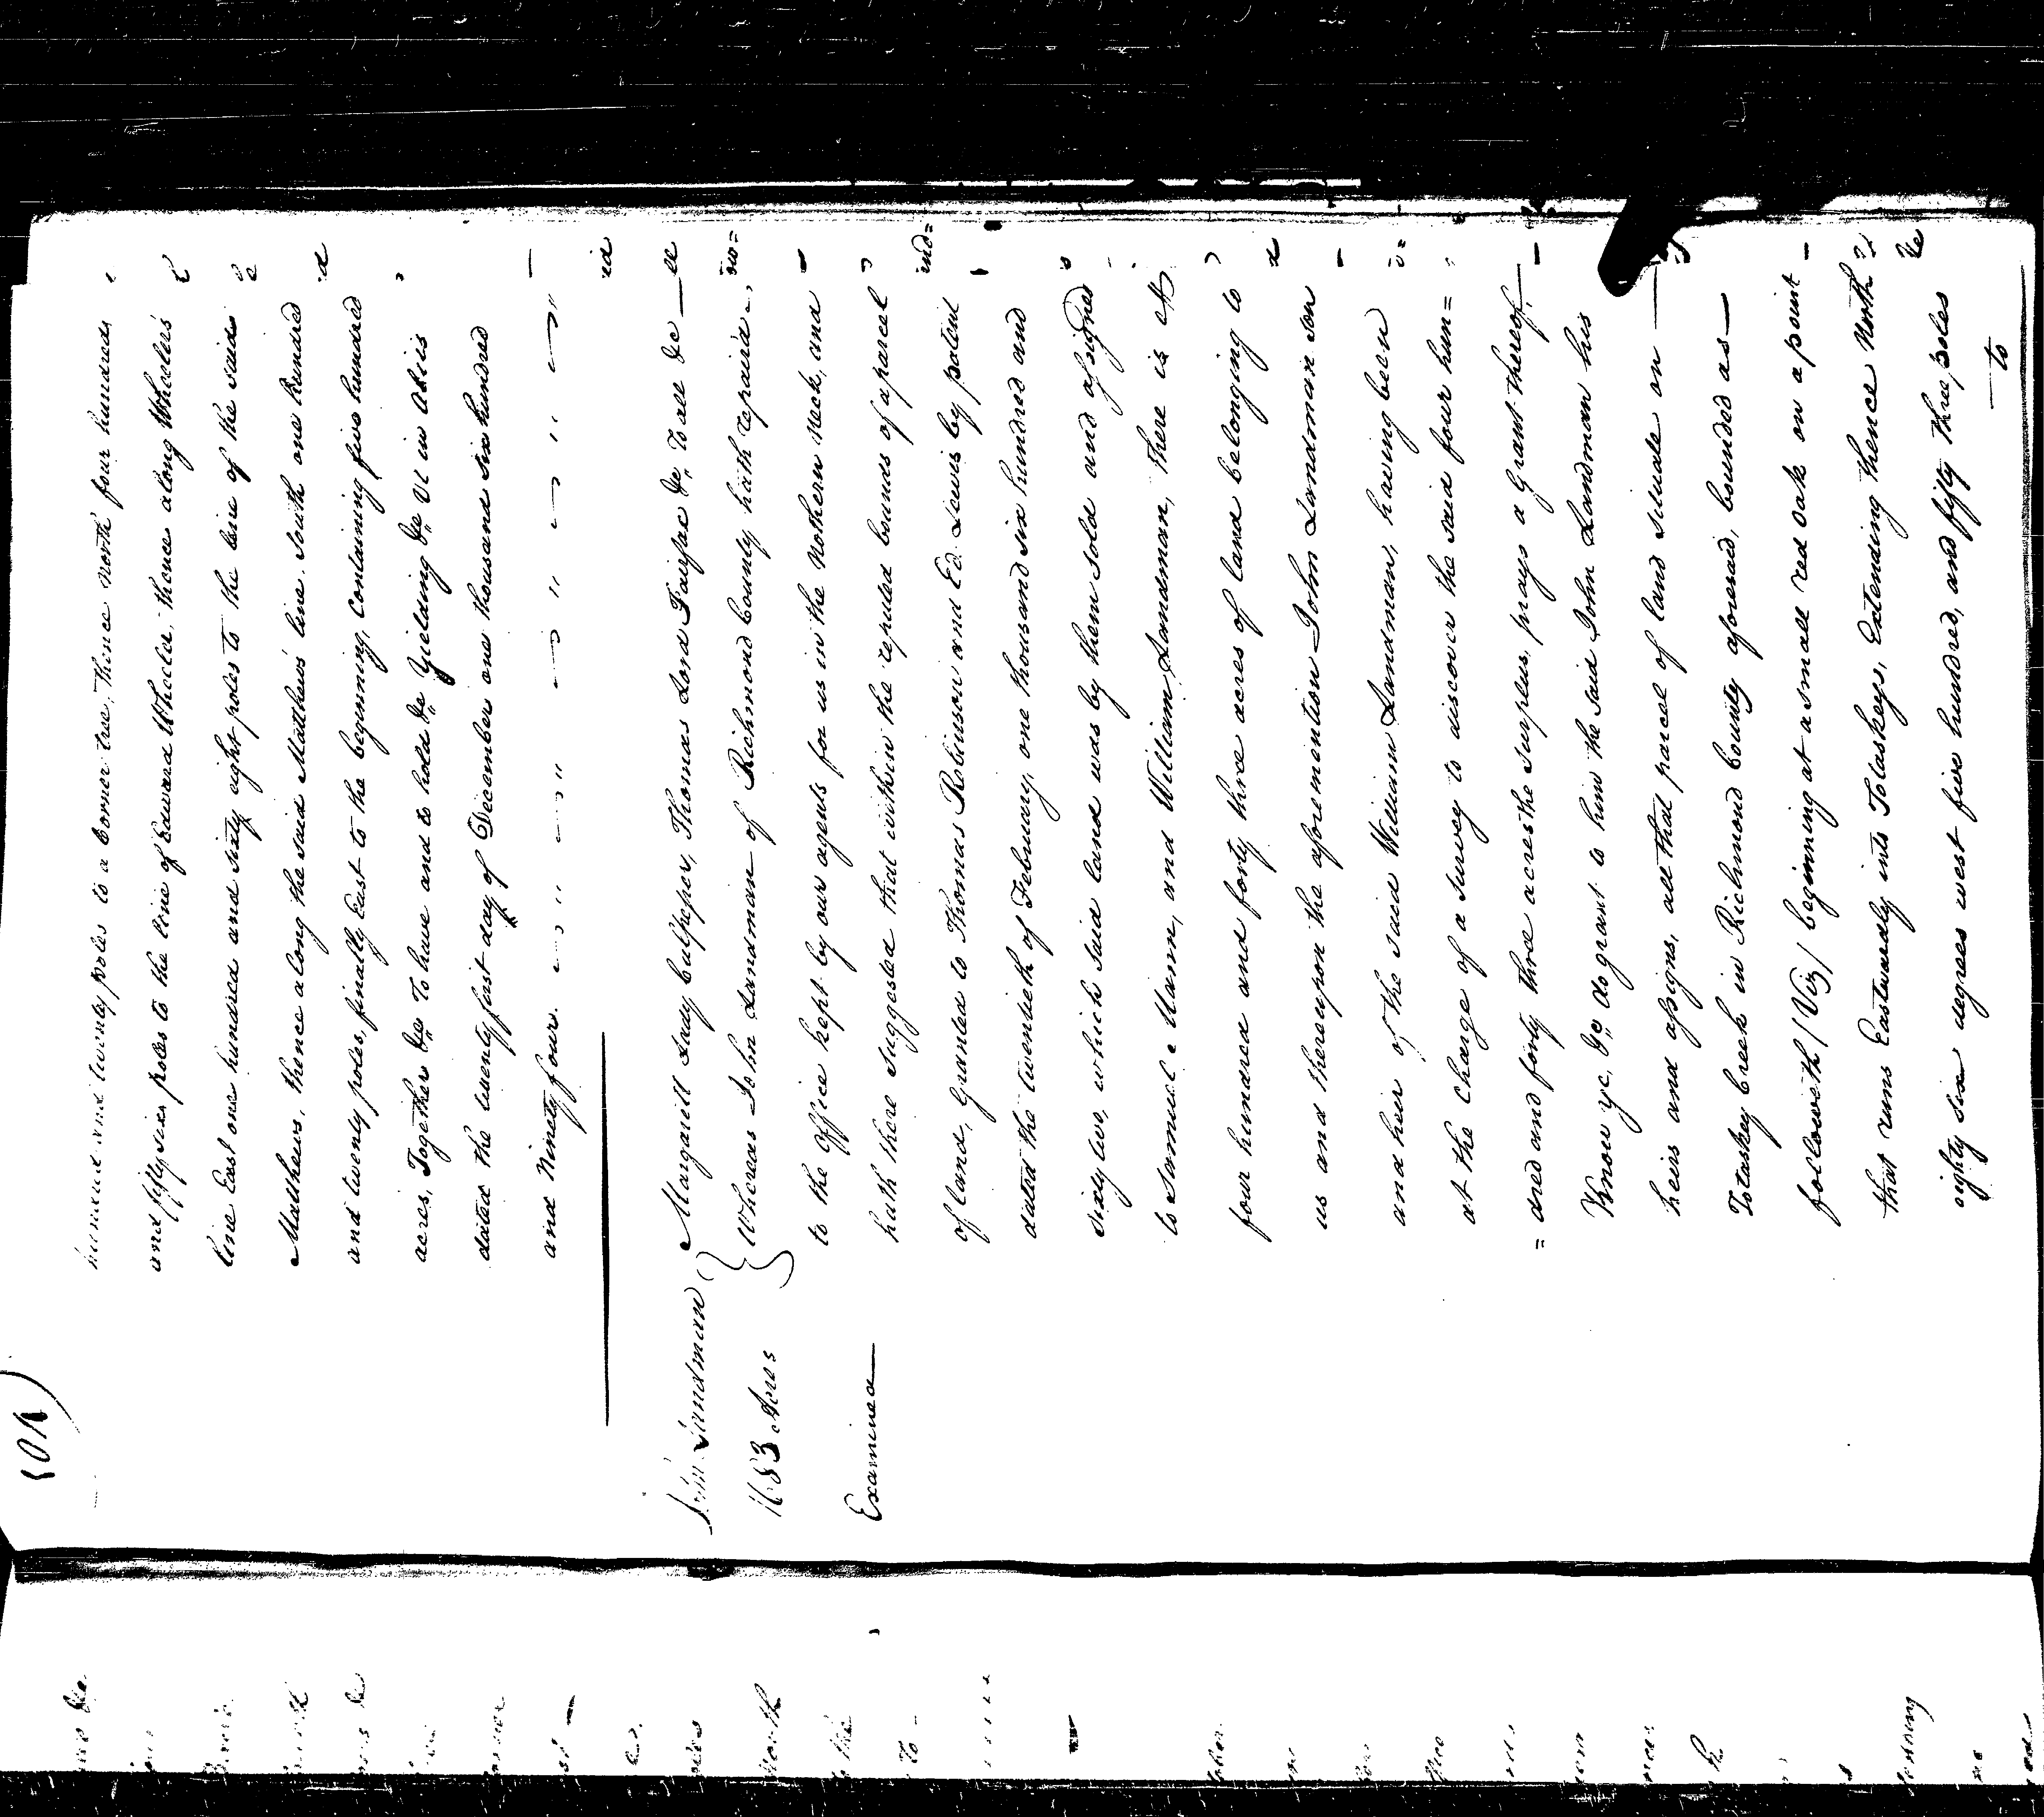 hundred and twenty poles to a Corner tree, thence North four hundred
and fifty six poles to the line of Edward Wheeler, thence along Wheelers
line East one hundred and sixty eight poles to the line of the said
Matthews, thence along the said Matthews line, South one hundred
and twenty poles, finally East to the beginning, Containing five hundred
acres, Together &c To have and to hold &c Yielding &c Ut in Aliis
dated the twenty first day of December one thousand six hundred
and Ninety four.
John Landman
1683 Acres
Examined
Margarett Lady Culpeper, Thomas Lord Fairfax &c, To all &c
Whereas John Landman of Richmond County hath repaird
to the office kept by our agents for us in the Nothern Neck, and
hath there suggested that within the reputed bounds of a parcel
of land, Granted to Thomas Robinson and Ed. Lewis by patent
dated the twentieth of February, one thousand six hundred and
sixty two, which said land was by them sold and assigned
to Samuel Mann, and William Landman, there is
four hundred and forty three acres of land belonging to
us and thereupon the aforemention John Landman son
and heir of the said William Landman, having been
at the charge of a survey to discover the said four hun=
=dred and forty three acres the surplus, prays a Grant thereof,
Know ye, &c, do grant to him the said John Landman his
heirs and assigns, all that parcel of land situate on
Totaskey Creek in Richmond County aforesaid, bounded as
followeth (Viz) beginning at a small red oak on a point
that runs Eastwardly into Totaskeys, Extending thence North
eighty six degrees west five hundred, and fifty three poles
to